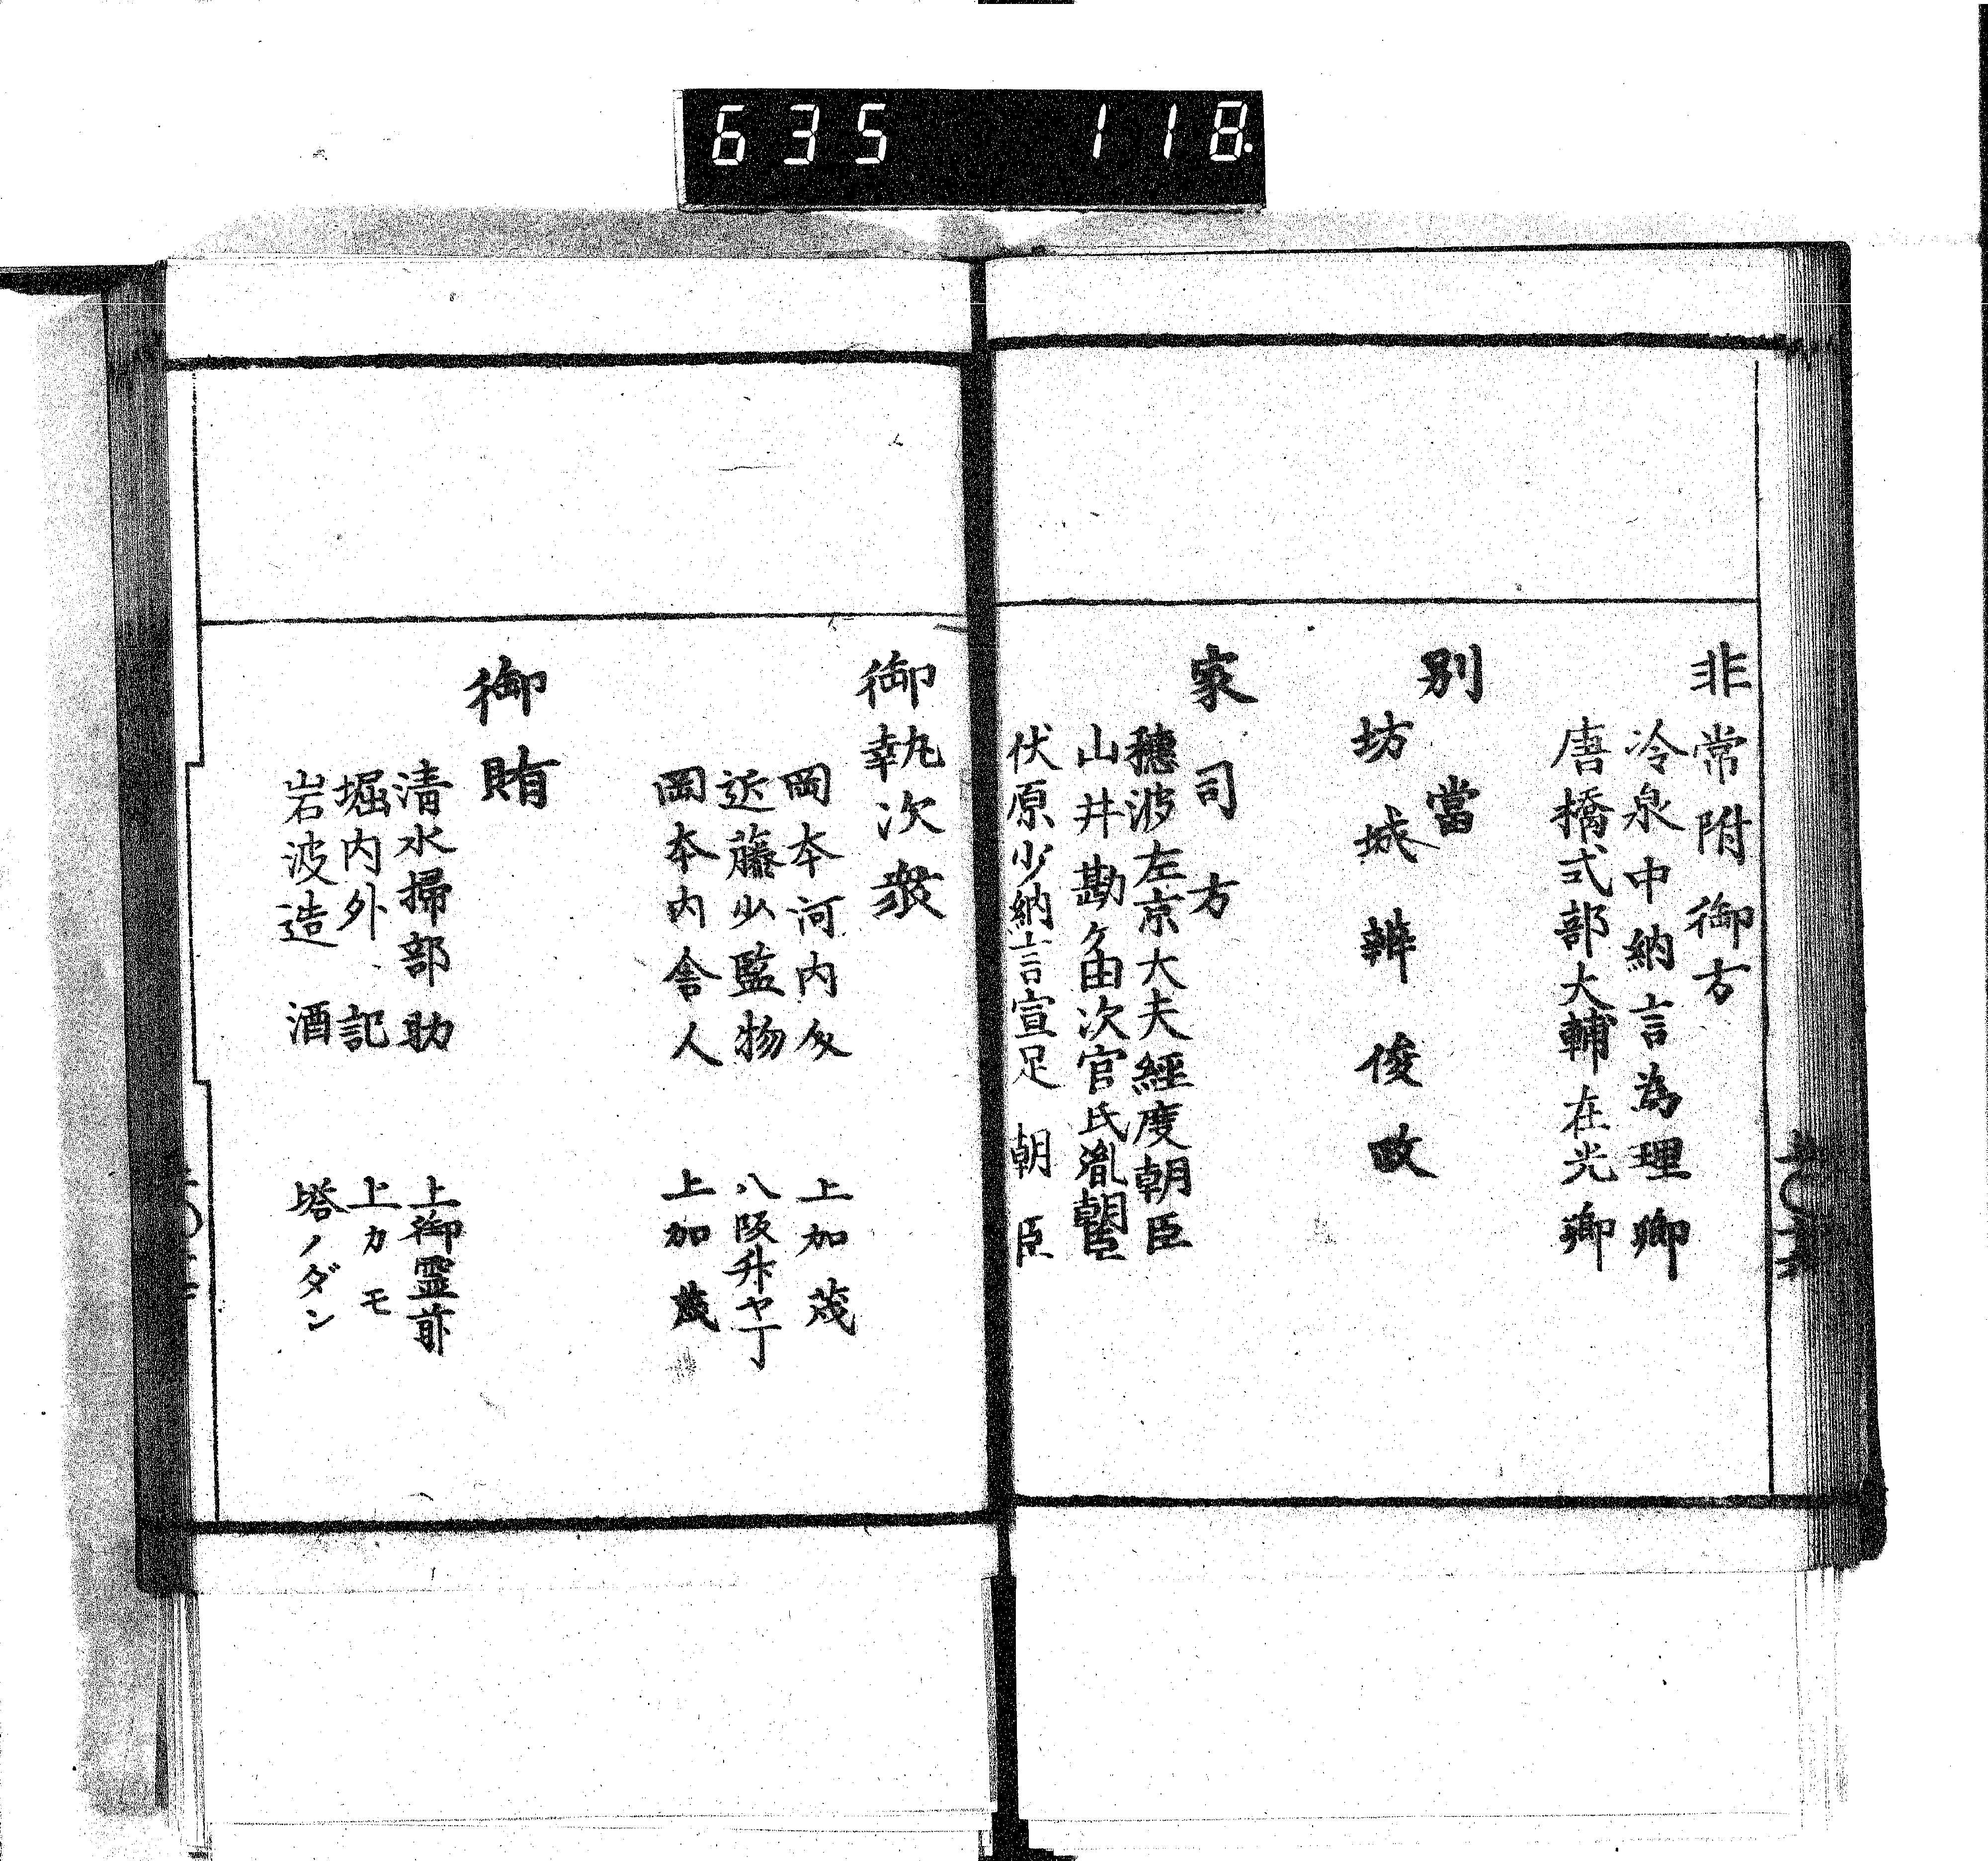 635 118.
非常附御方
冷泉中納言為理卿
唐橋式部大輔在光卿
別當
坊城辨俊政
家司方
穂波左京大夫經度朝臣
山井勘ケ由次官氏胤朝臣
伏原少納言宣足朝臣
御執次衆
岡本河内守 上加茂
近藤少監物 八阪升ヤ丁
岡本内舎人 上加茂
御賄
清水掃部助 上御霊前
堀内外記 上カモ
岩波造酒 塔ノダン